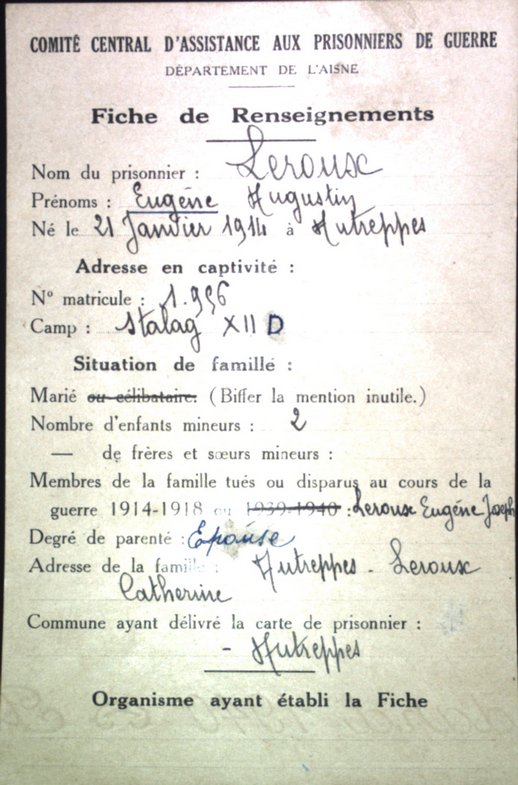 COMITÉ CENTRAL D'ASSISTANCE AUX PRISONNIERS DE GUERRE
DÉPARTEMENT DE L'AISNE
Fiche de Renseignements
Nom du prisonnier : Leroux
Prénoms : Eugène Augustin
Né le 21 Janvier 1914 à Autreppes
Adresse en captivité :
N° matricule : 1.956
Camp : Stalag XII D
Situation de famille :
Marié ou célibataire. (Biffer la mention inutile.)
Nombre d'enfants mineurs : 2
— de frères et sœurs mineurs :
Membres de la famille tués ou disparus au cours de la
guerre 1914-1918 ou 1939-1940 : Leroux Eugène Joseph
Degré de parenté : Epouse
Adresse de la famille : Autreppes - Leroux
Catherine
Commune ayant délivré la carte de prisonnier :
- Autreppes
Organisme ayant établi la Fiche